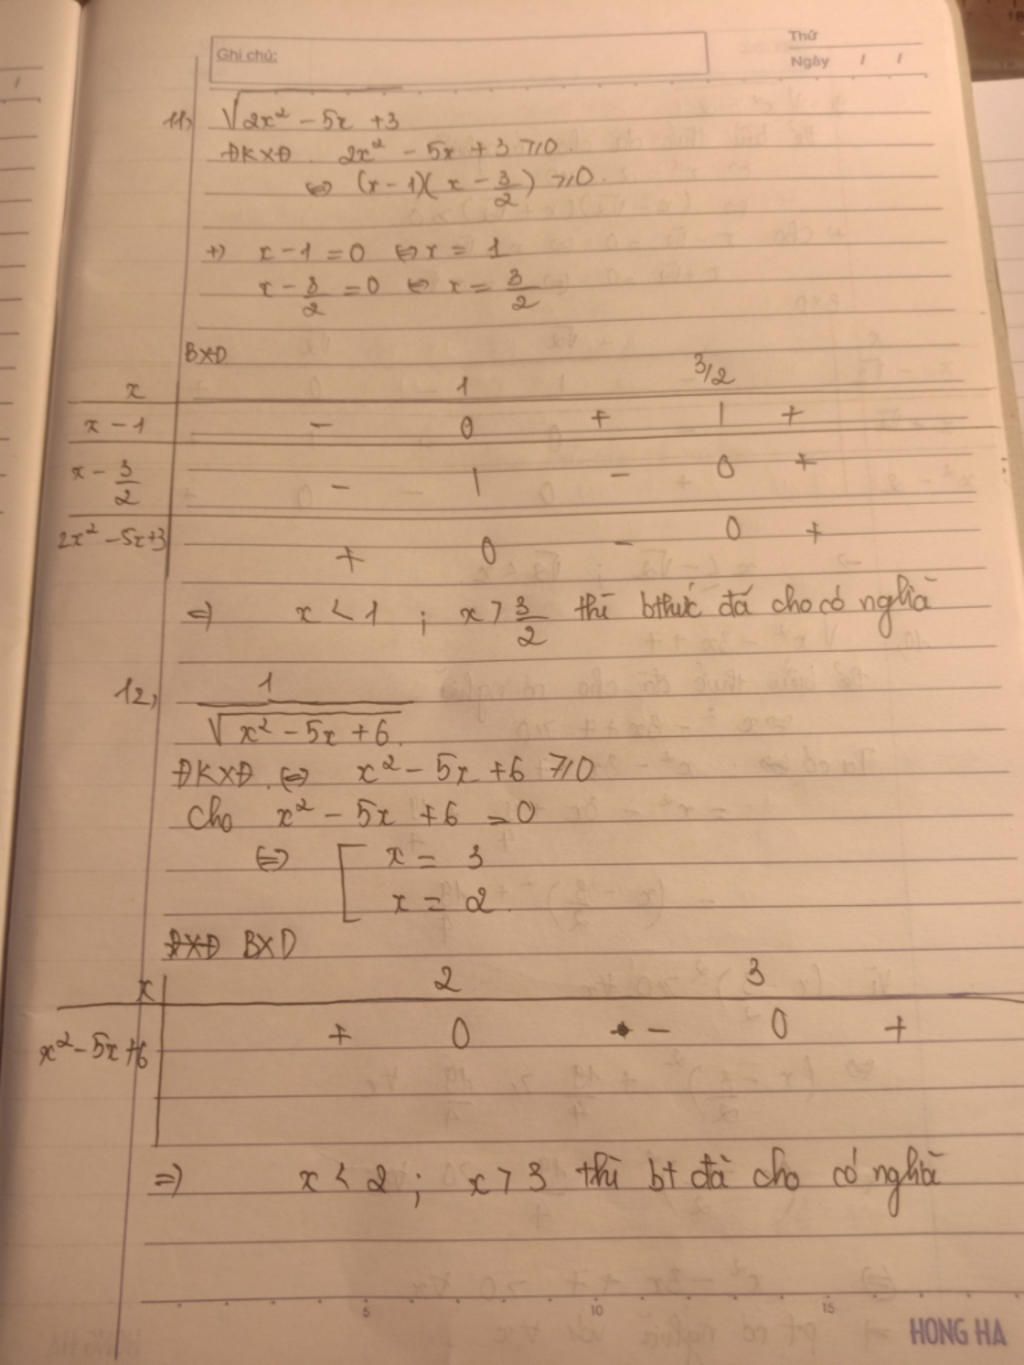 Ghi chú:
Thứ
Ngày / /
11, √2x² - 5x + 3
ĐKXĐ. 2x² - 5x + 3 ⩾ 0.
⇔ (x - 1)(x - 3/2) ⩾ 0.
+) x - 1 = 0 ⇔ x = 1
x - 3/2 = 0 ⇔ x = 3/2
BXD
x 1 3/2
x - 1 - 0 + | +
x - 3/2 - | - 0 +
2x² - 5x + 3 + 0 - 0 +
⇒ x < 1 ; x > 3/2 thì bthức đã cho có nghĩa
12, 1/√x² - 5x + 6.
ĐKXĐ. ⇔ x² - 5x + 6 ⩾ 0
Cho x² - 5x + 6 = 0
⇔ [ x = 3
x = 2.
BXD
x 2 3
x² - 5x + 6 + 0 - 0 +
⇒ x < 2 ; x > 3 thì bt đã cho có nghĩa
5 10 15
HONG HA